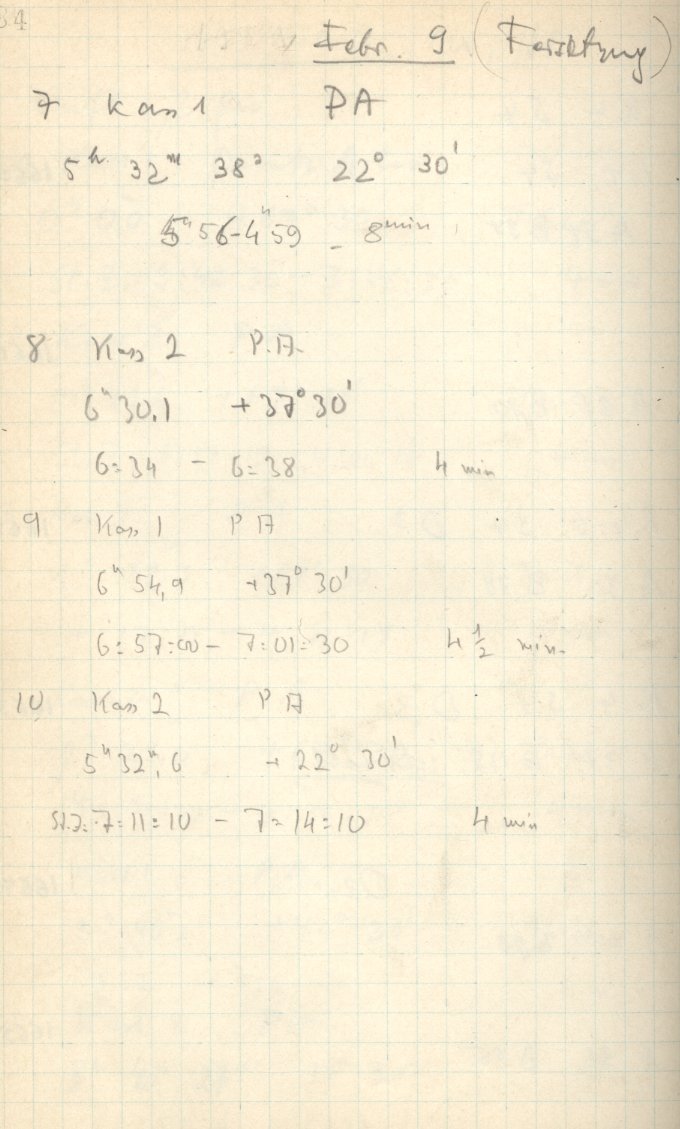 34
Febr. 9 (Forsetzung)
7 Kass 1 PA
5h 32m 38s 22° 30'
5h 56-4h 59 - 8min
8 Kass 2 P.A.
6h 30.1 +37° 30'
6:34 - 6:38 4 min
9 Kass 1 PA
6h 54,9 +37° 30'
6:57:00 - 7:01:30 4 1/2 min.
10 Kass 2 PA
5h 32m,6 + 22° 30'
7:11:10 - 7:14:10 4 min